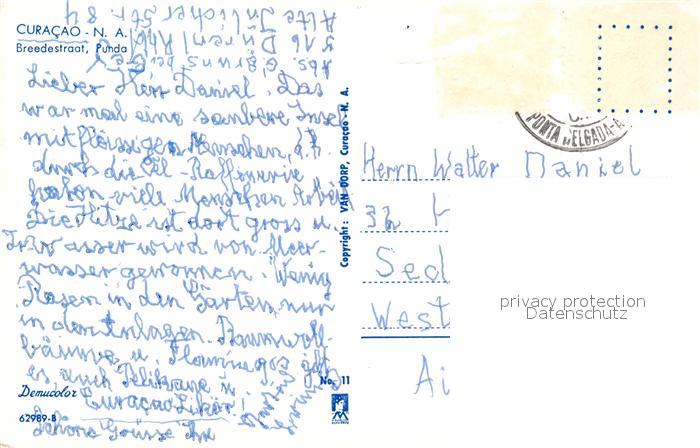 CURAÇAO - N. A.
Breedestraat, Punda
Abs. G. Bruns bei
516 Düren/Rhld
Alte Jülicher Str. 84
Lieber Herr Daniel. Das
war mal eine saubere Insel
mit fleissigen Menschen, d.h.
durch die Öl-Raffinerie
haben viele Menschen Arbeit
Die Hitze ist dort gross u.
Trinkwasser wird von Meer-
wasser gewonnen. Wenig
Rasen in den Gärten, nur
in den Anlagen. Baumwoll-
bäume u. Flamingos gibt
es, auch Pelikane u.
Curaçao Likör!
Schöne Grüsse Ihr
Demucolor
62989-B
No. 11
Copyright: VAN DORP, Curaçao - N. A.
PONTA DELGADA-A
Herrn Walter Daniel
32 H
Sed
West
Ai
privacy protection
Datenschutz